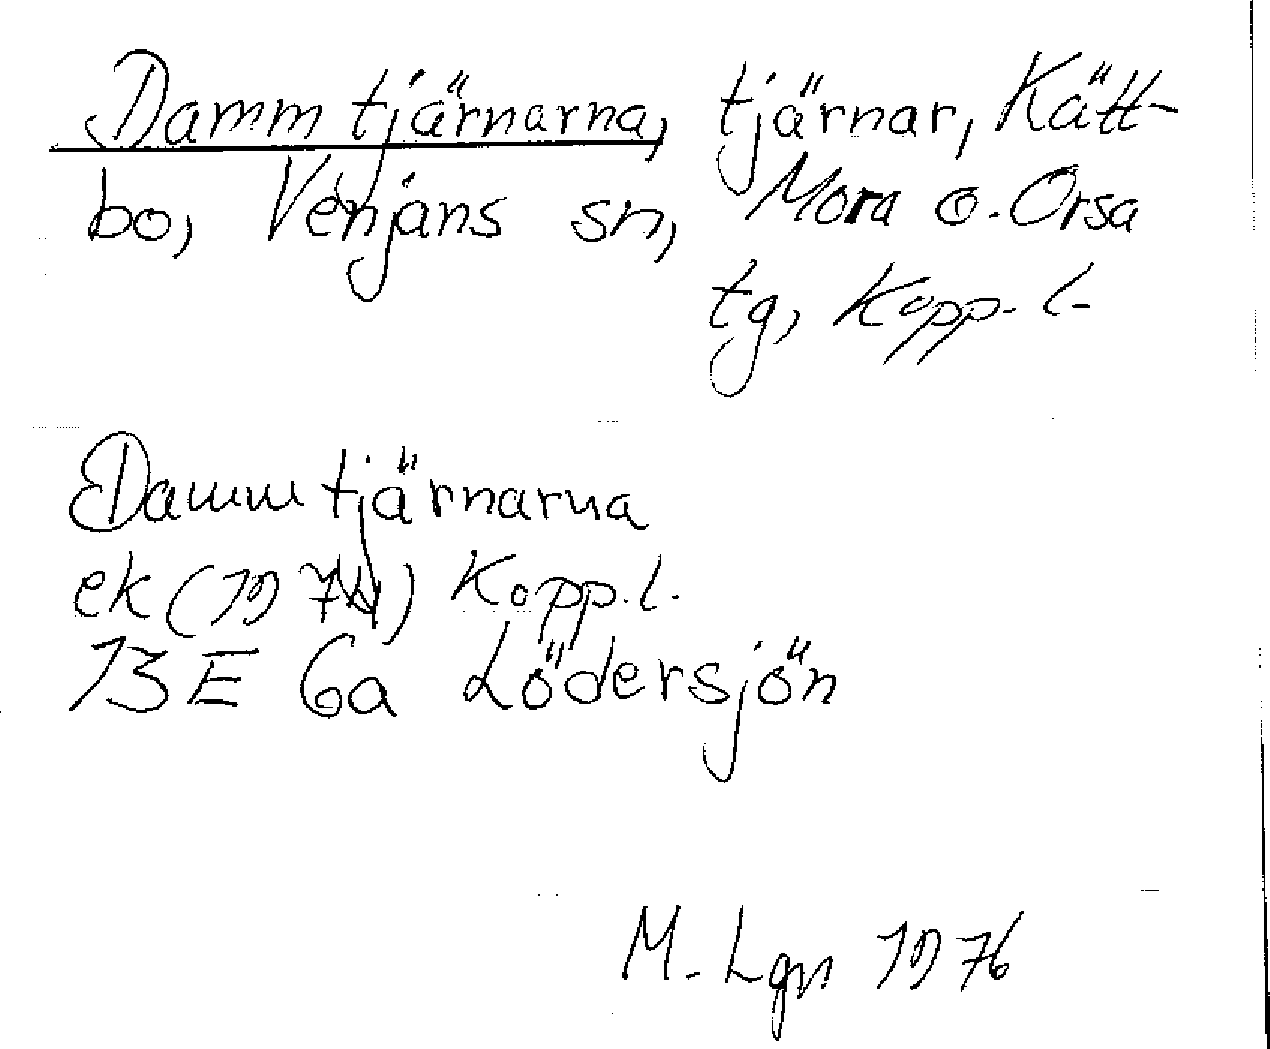 Dammtjärnarna, tjärnar, Kätt-
bo, Venjans sn, Mora o. Orsa
tg, Kopp. l.
Dammtjärnarna
ek (1974) Kopp. l.
13 E 6a Lödersjön
M. Lgn 1976